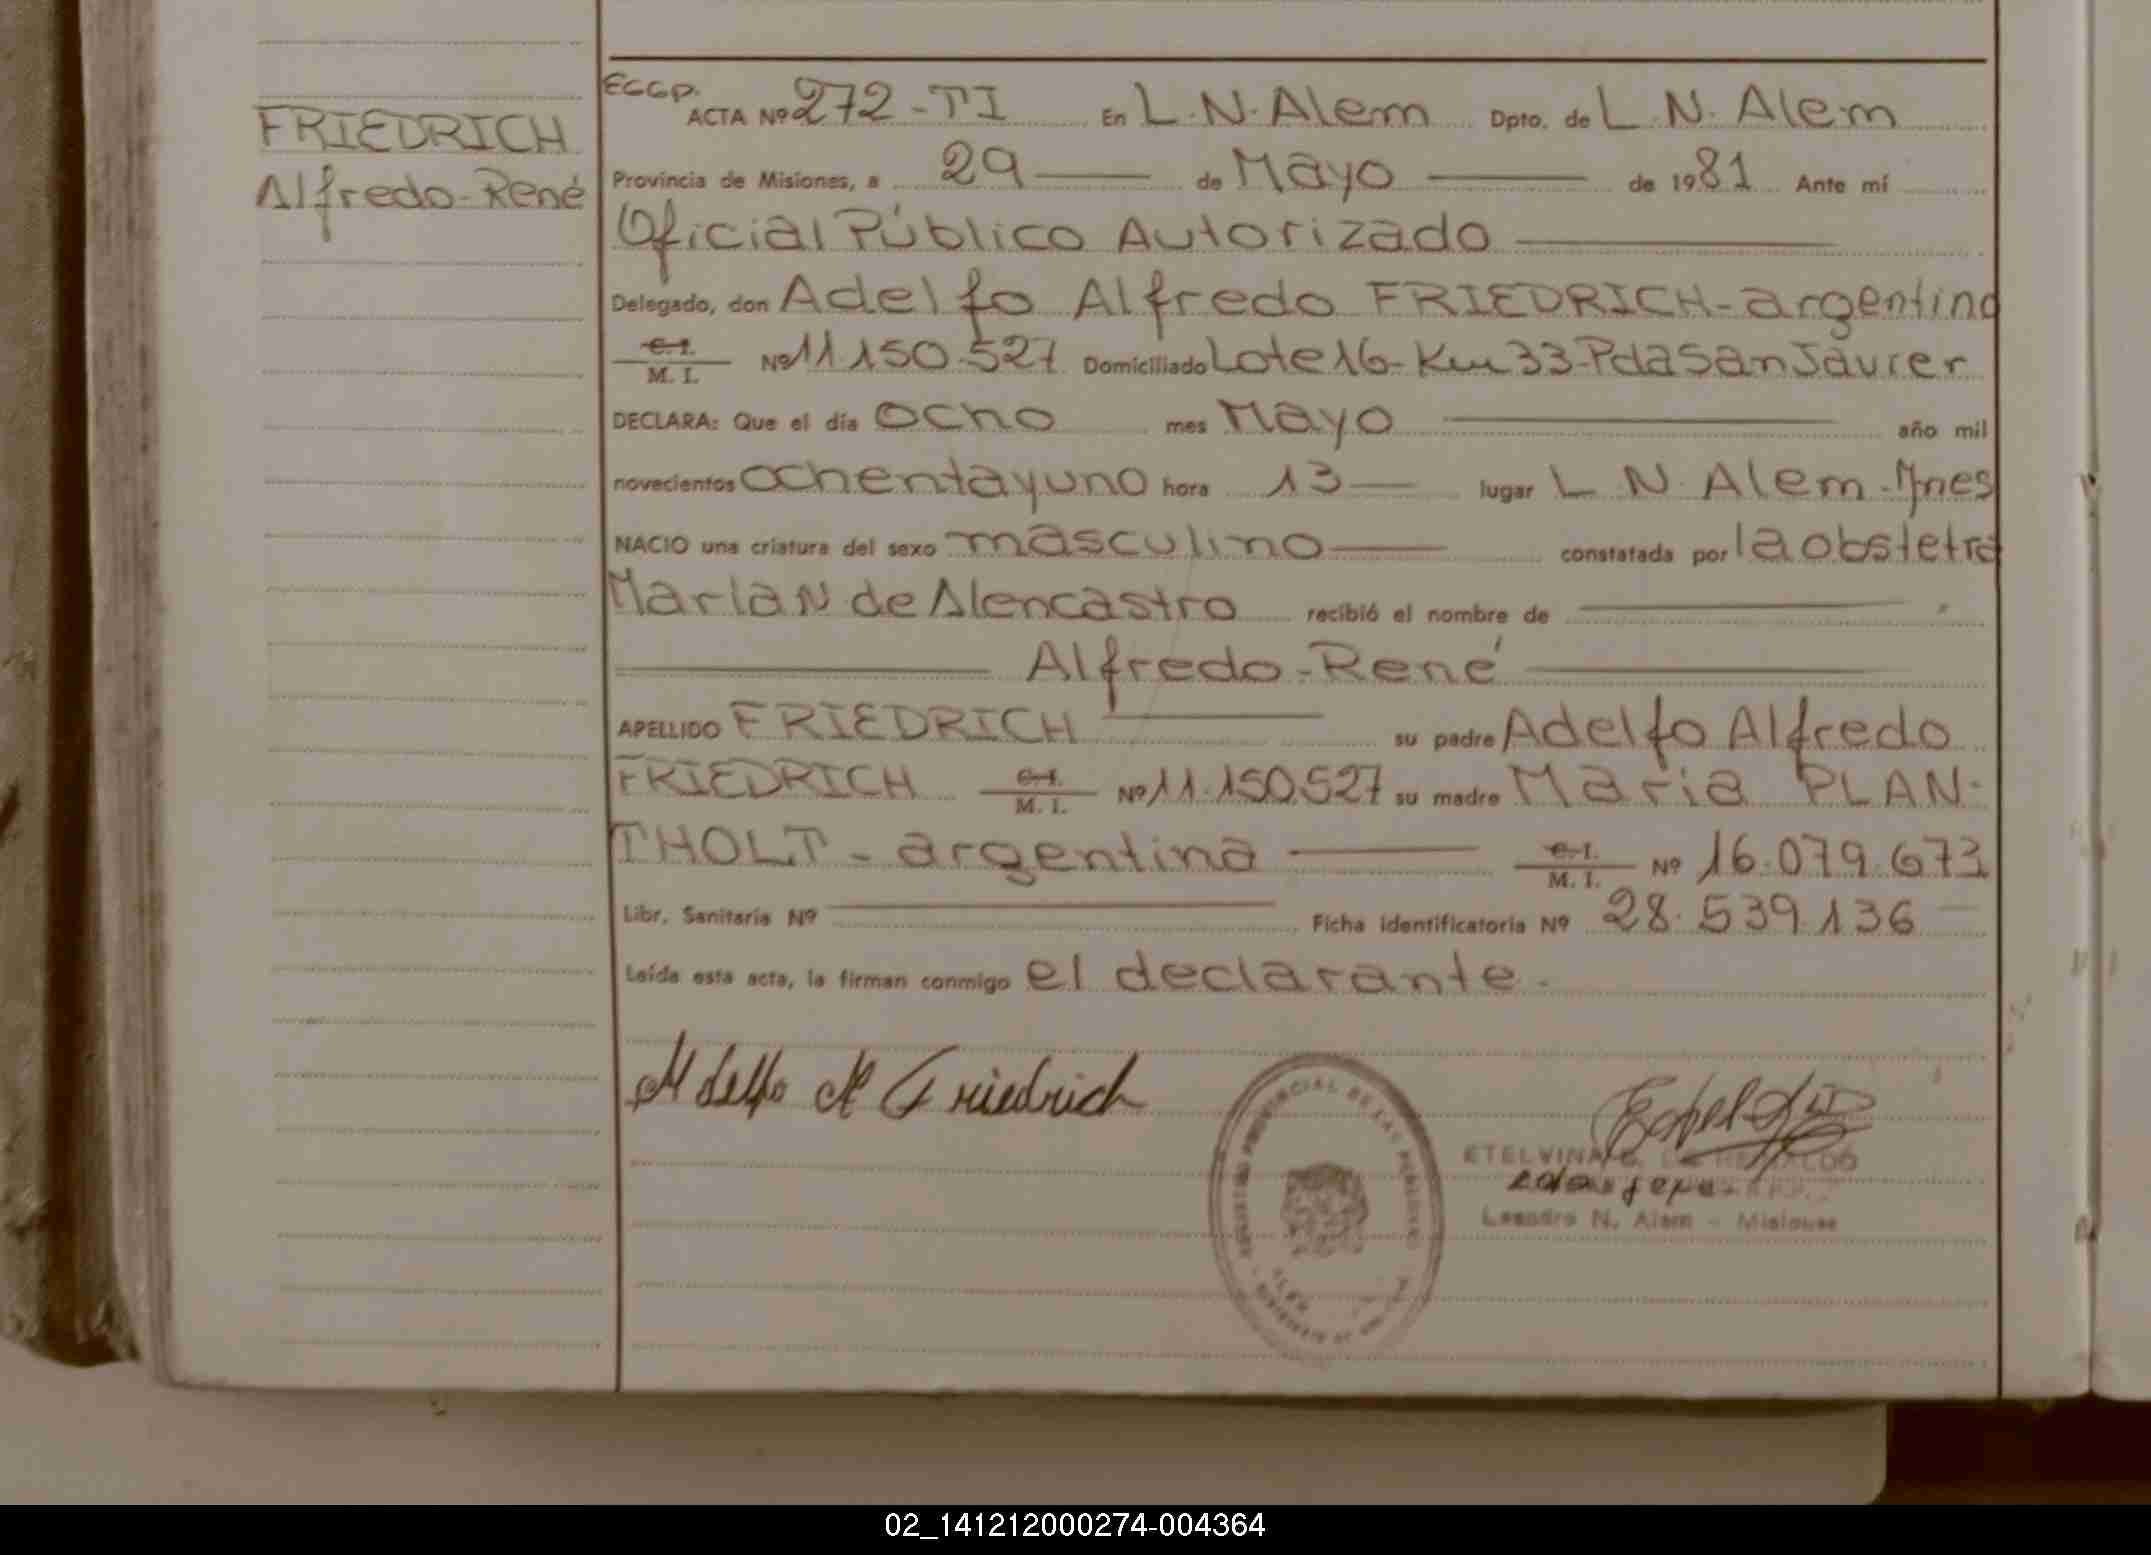 FRIEDRICH
Alfredo-René
ECGP.
ACTA Nº 272-TI En L.N.Alem Dpto. de L.N. Alem
Provincia de Misiones, a 29 de Mayo de 1981 Ante mí
Oficial Público Autorizado
Delegado, don Adelfo Alfredo FRIEDRICH-argentino
C.I. M. I. Nº 11.150.527 Domiciliado Lote16-Km33-PdaSanJavier
DECLARA: Que el día ocho mes Mayo año mil
novecientos ochentayuno hora 13 lugar L N. Alem-Mnes
NACIO una criatura del sexo masculino constatada por laobstetra
MarlaN de Alencastro recibió el nombre de
Alfredo-René
APELLIDO FRIEDRICH su padre Adelfo Alfredo
FRIEDRICH C.I. M. I. Nº 11.150.527 su madre Maria PLAN-
THOLT-argentina C.I. M. I. Nº 16.079.673
Libr. Sanitaria Nº Ficha identificatoria Nº 28.539.136
Leída esta acta, la firman conmigo el declarante.
Adelfo A Friedrich
ETELVINA
Leandro N. Alem - Misiones
02_141212000274-004364